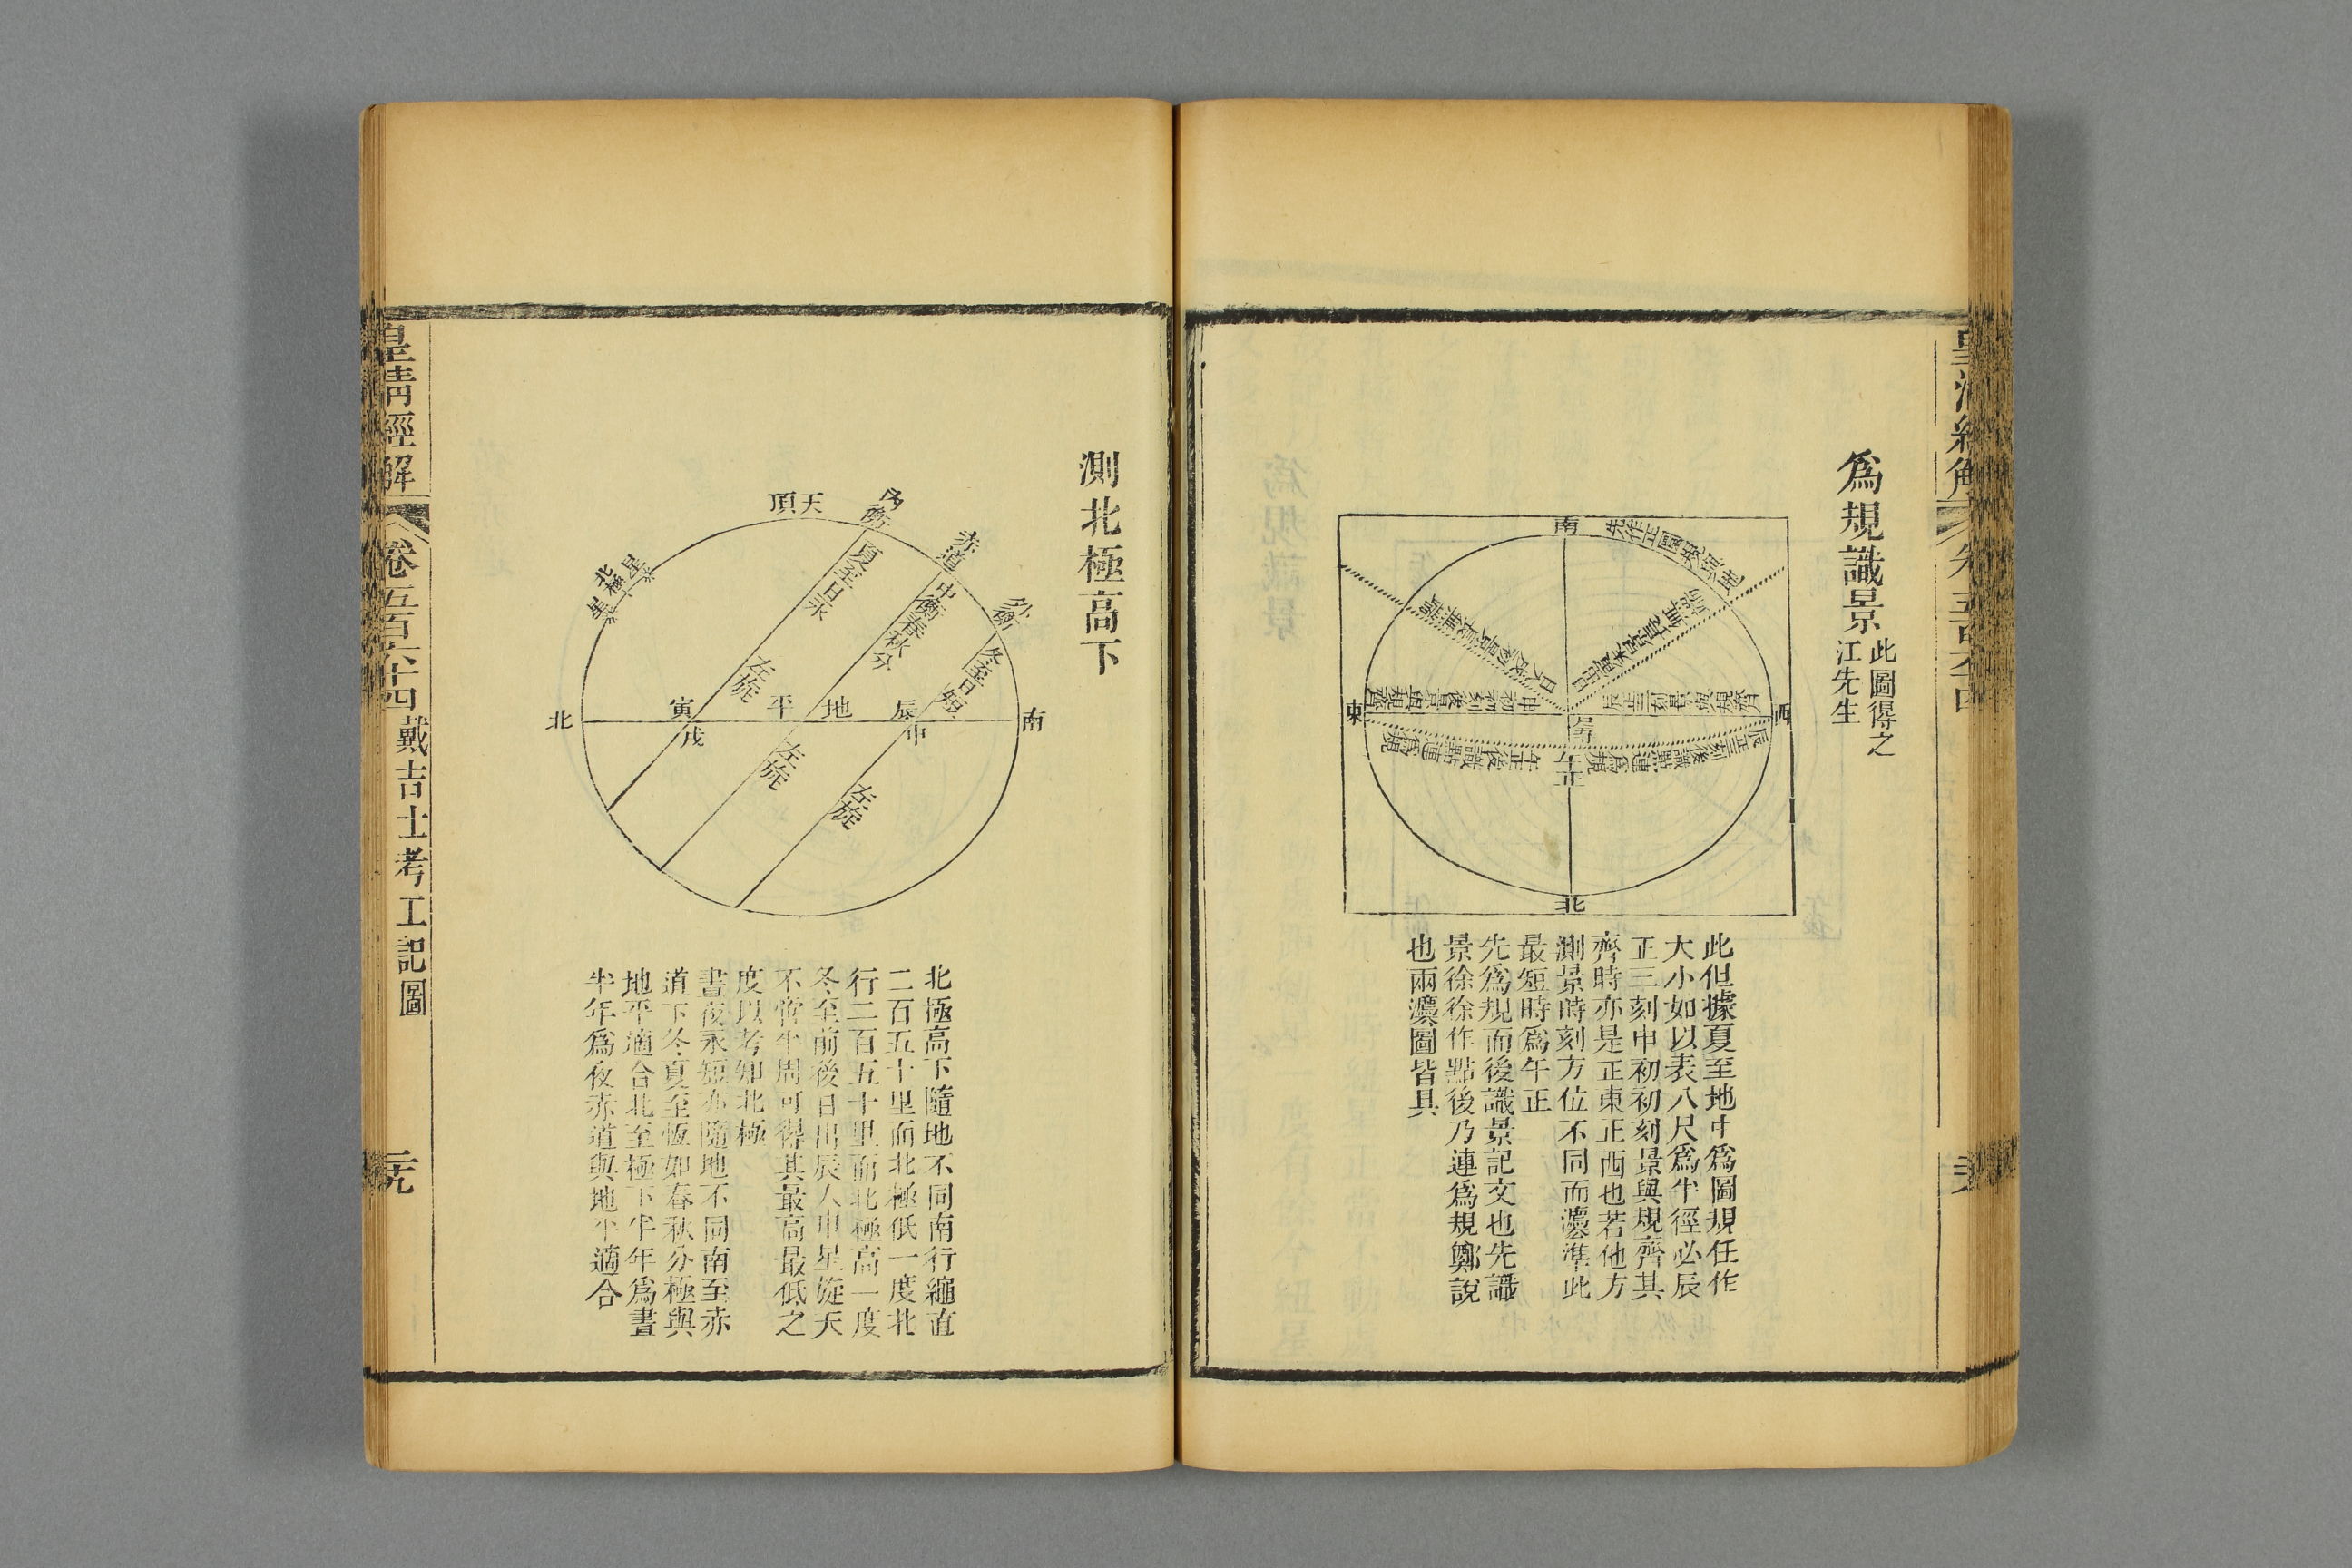 爲規識景
此圖得之
江先生
南
先作正圜規於地
東
西
午正
北
此但據夏至地中爲圖規任作
大小如以表八尺爲半徑必辰
正三刻申初初刻景與規齊其
齊時亦是正東正西也若他方
測景時刻方位不同而灋準此
最短時爲午正
先爲規而後識景記文也先識
景徐徐作點後乃連爲規鄭說
也兩灋圖皆具
測北極高下
天頂
內衡
赤道
外衡
北極
夏至日永
中衡春秋分
冬至日短
左旋
左旋
左旋
北
寅
戌
平
地
辰
申
南
北極高下隨地不同南行繩直
二百五十里而北極低一度北
行二百五十里而北極高一度
冬至前後日出辰入申星旋天
不啻半周可得其最高最低之
度以考知北極
晝夜永短亦隨地不同南至赤
道下冬夏至恆如春秋分極與
地平適合北至極下半年爲晝
半年爲夜赤道與地平適合
皇清經解
卷五百六十四
戴吉士考工記圖